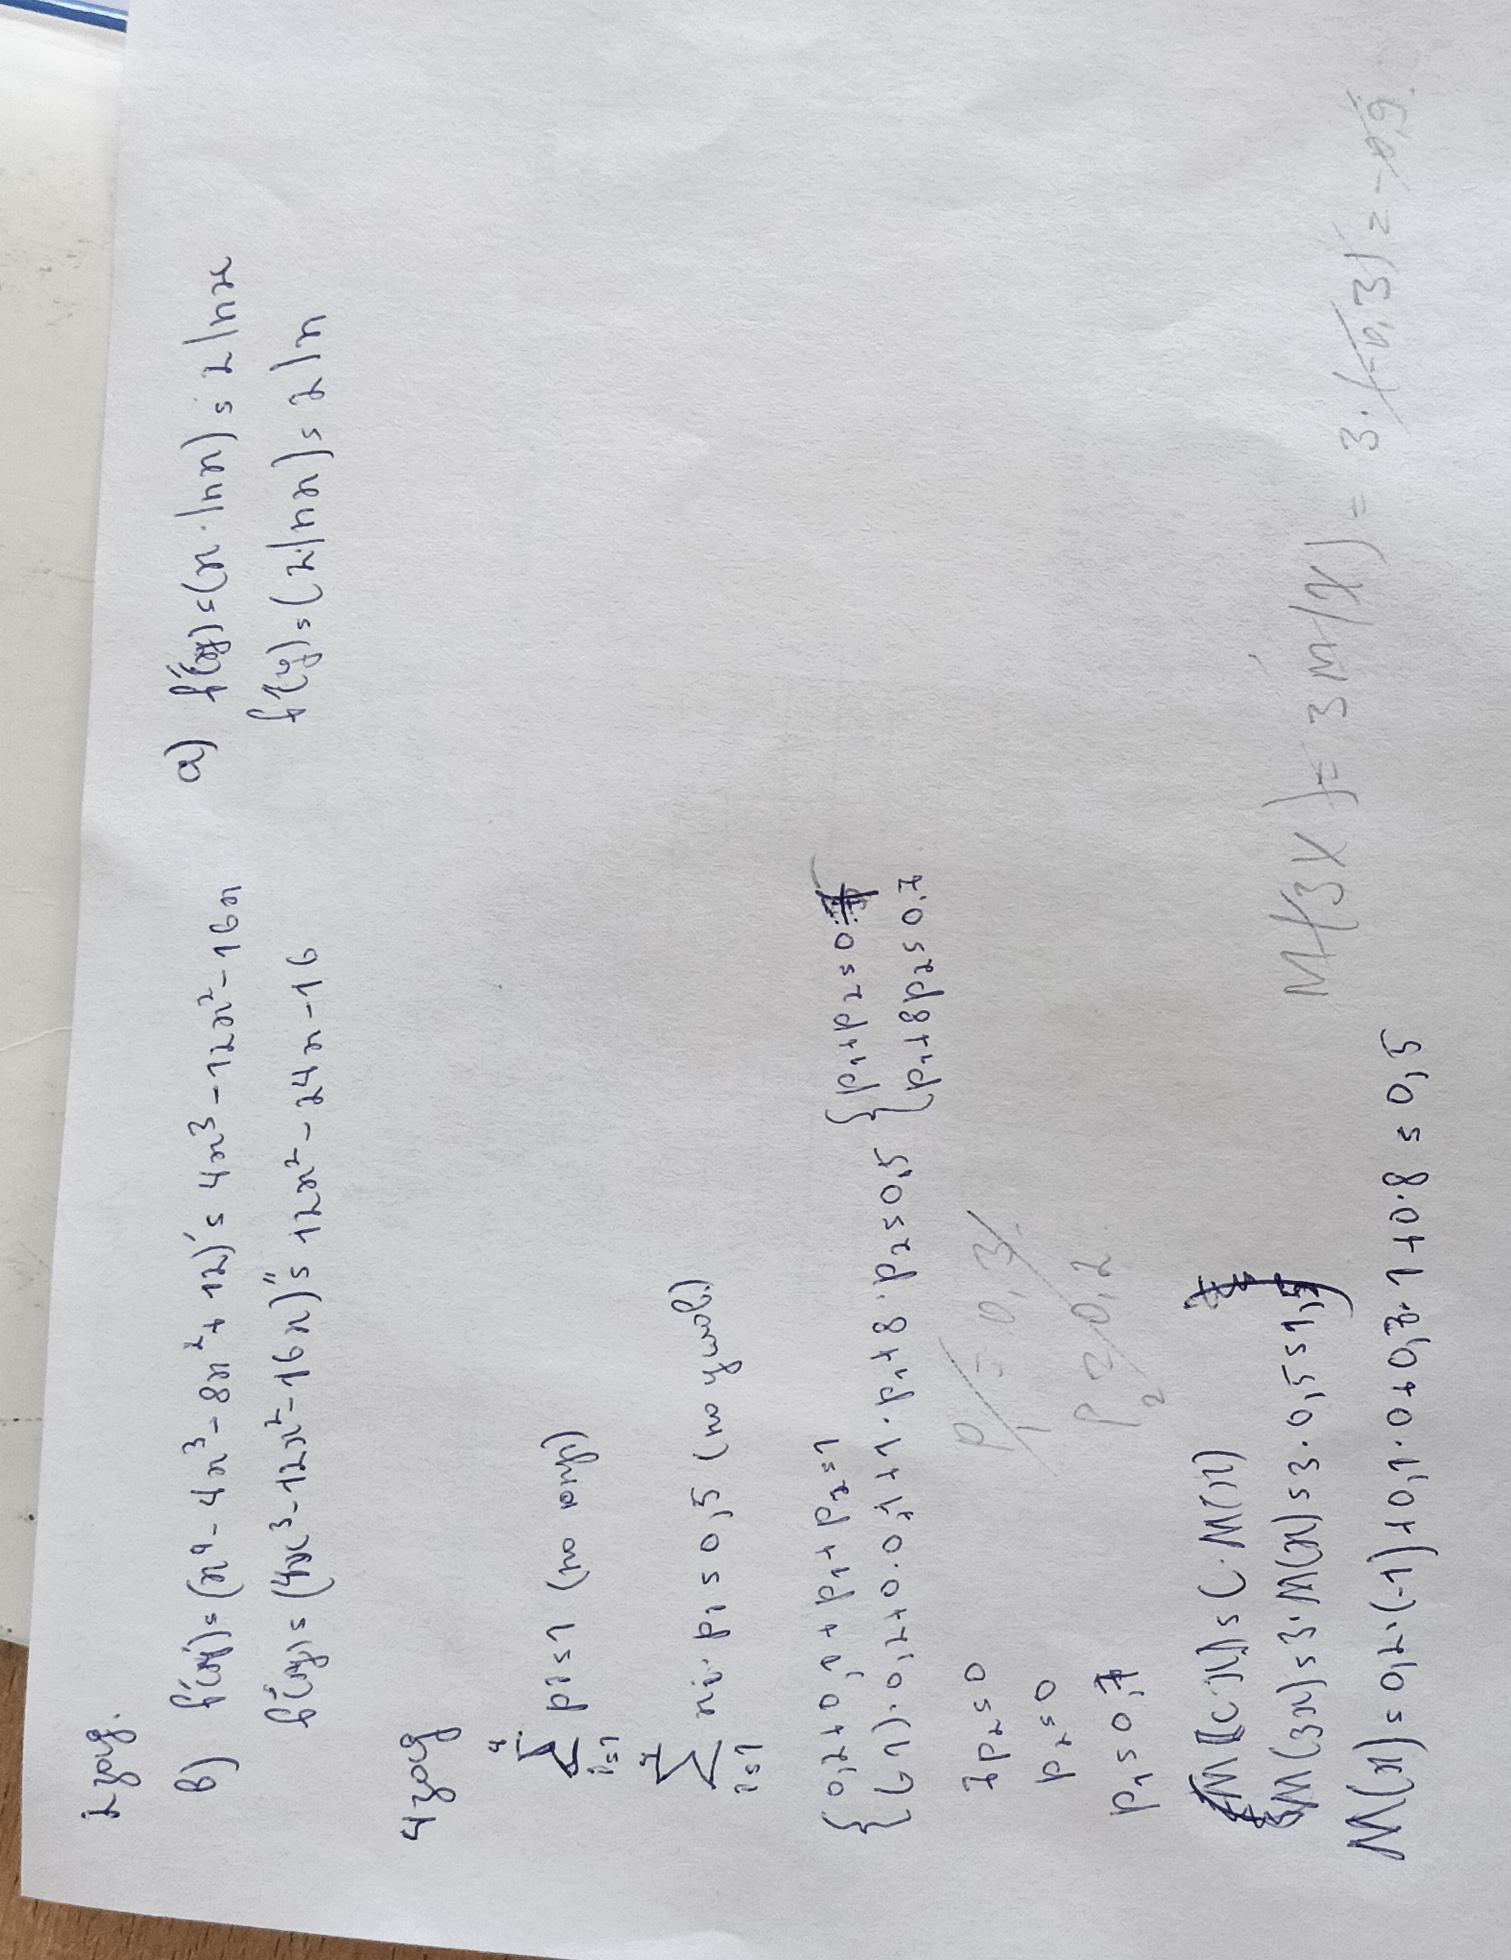 2 зад.
в) f'(y)=(x⁴-4x³-8x²+12)'=4x³-12x²-16x
f''(y)=(4x³-12x²-16x)''=12x²-24x-16
а) f'(y)=(x·lnx)=2lnx
f'(y)=(2lnx)=2ln
4зад
4 Σ i=1 pi=1 (по опр)
4 Σ i=1 xi·pi=0,5 (по услов.)
{0,2+0,1+p₁+p₂=1
(-1)·0,2+0·0,1+1·p₁+8·p₂=0,5
{p₁+p₂=0,7
{p₁+8p₂=0.7
7p₂=0
p₂=0
p₁=0,7
P₁=0,3
P₂=0,2
M(C·X)=C·M(x)
M(3x)=3·M(x)=3·0,5=1,5
M(x)=0,2·(-1)+0,1·0+0,7·1+0·8=0,5
M(3X)=3M(X)=3·(-0,3)=-0,9.